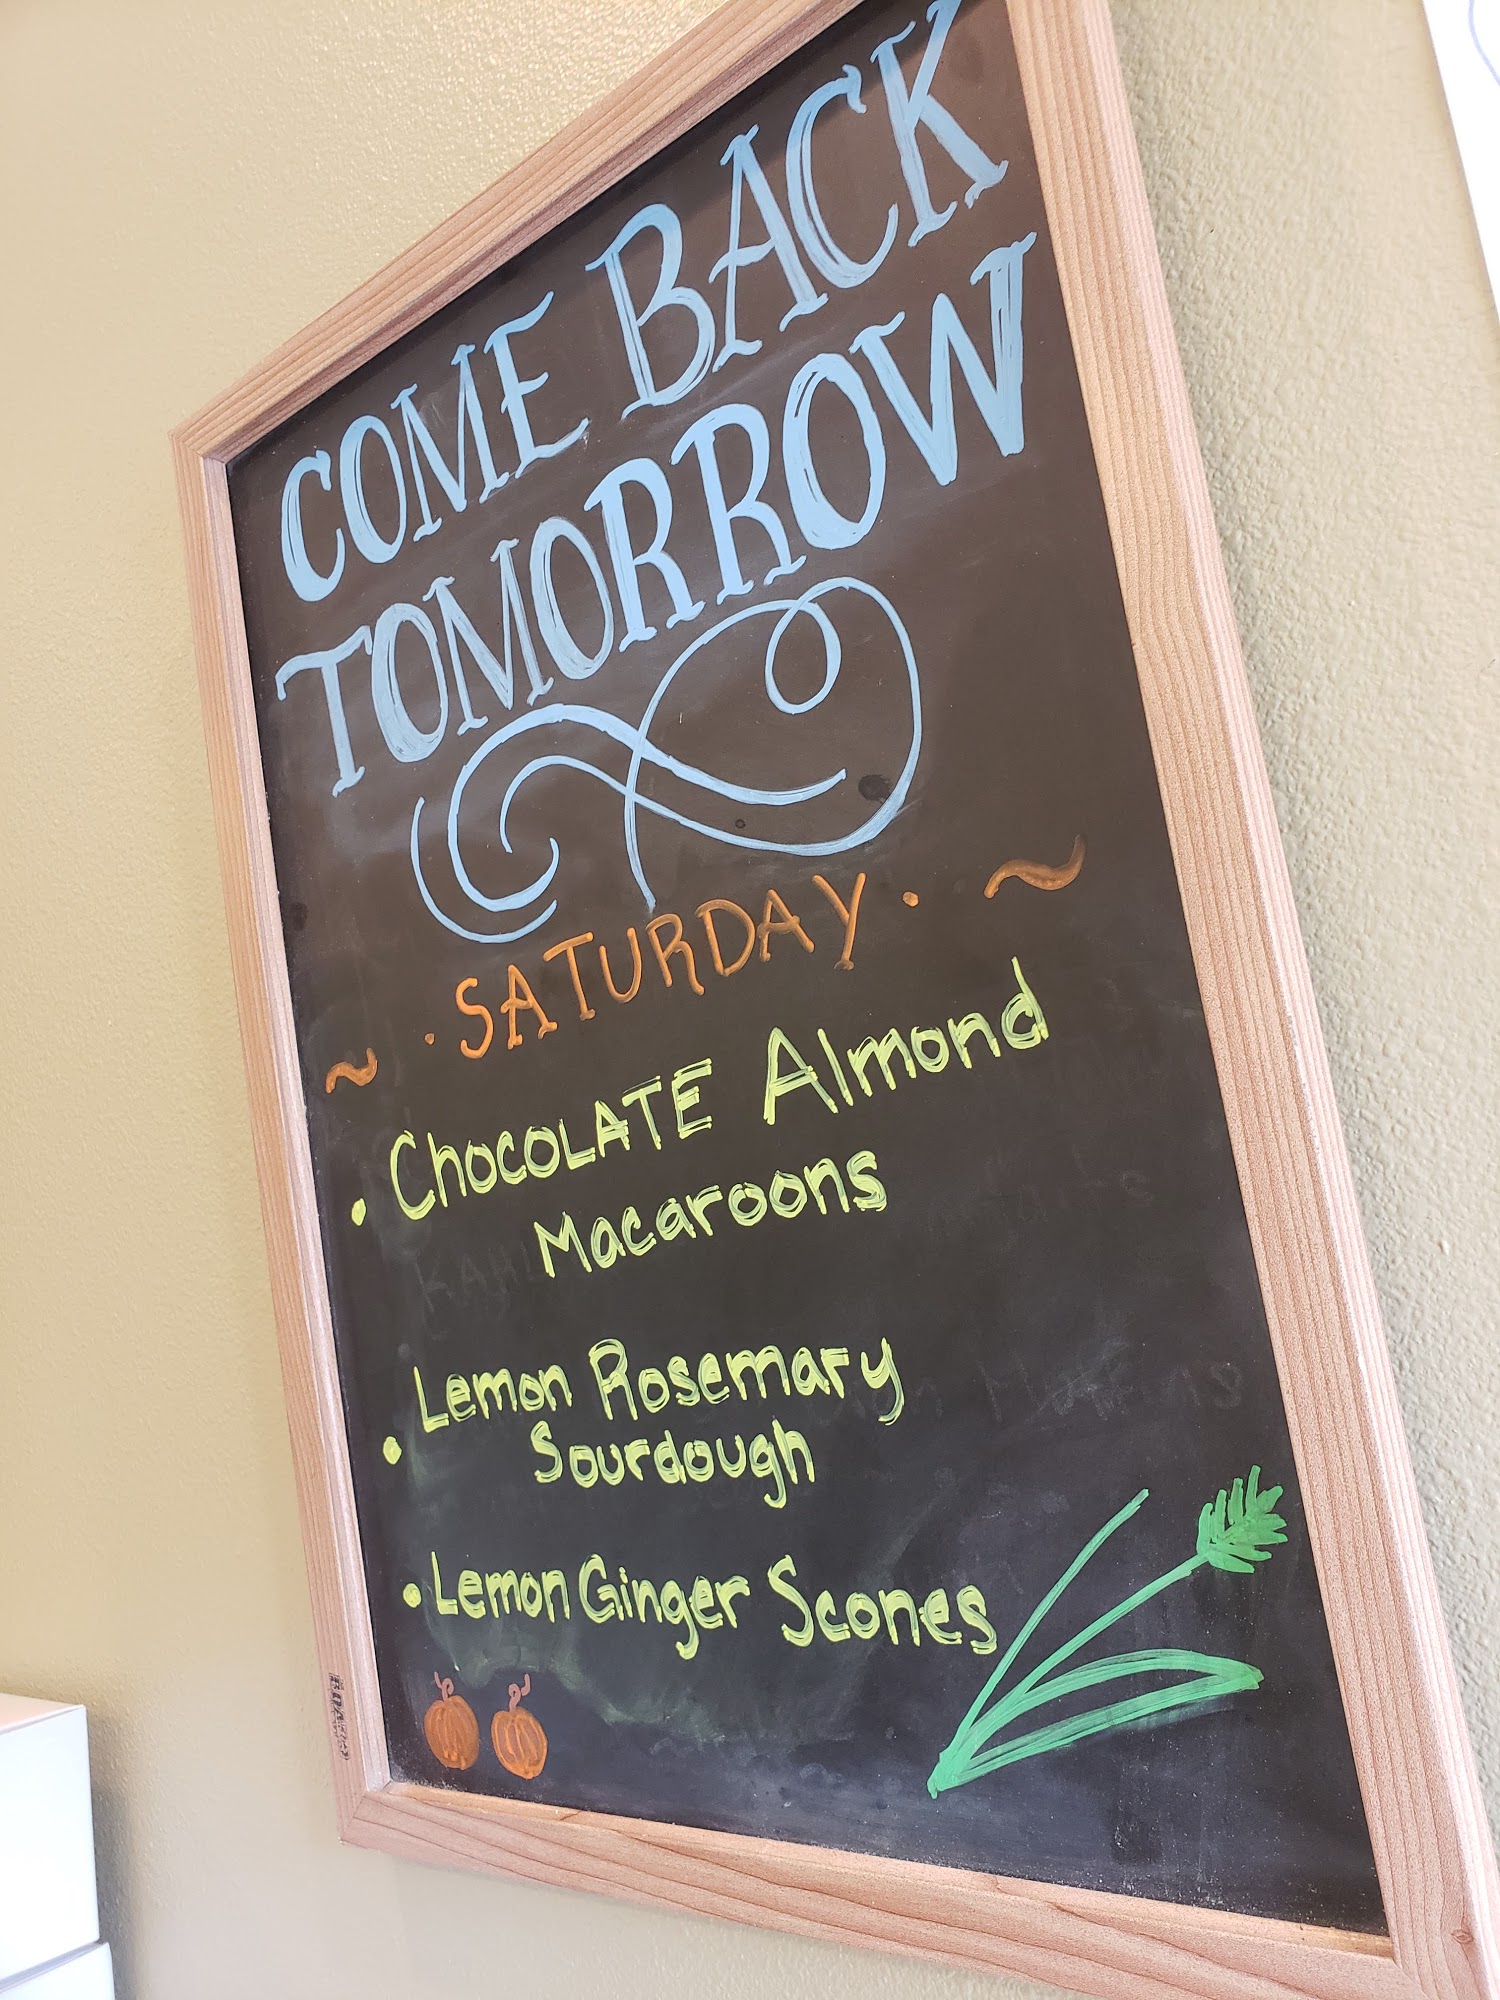 COME BACK
TOMORROW
~ · SATURDAY · ~
• CHOCOLATE Almond
Macaroons
• Lemon Rosemary
Sourdough
• Lemon Ginger Scones